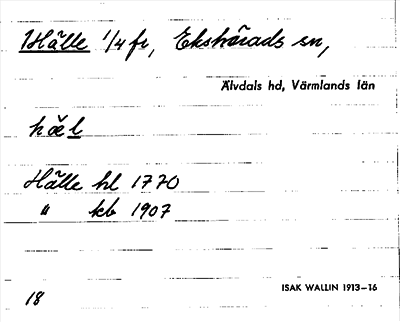 Hälle 1/4 fr, Ekshärads sn,
Älvdals hd, Värmlands län
hæ̆l
Hälle hl 1770
" kb 1907
ISAK WALLIN 1913–16
18